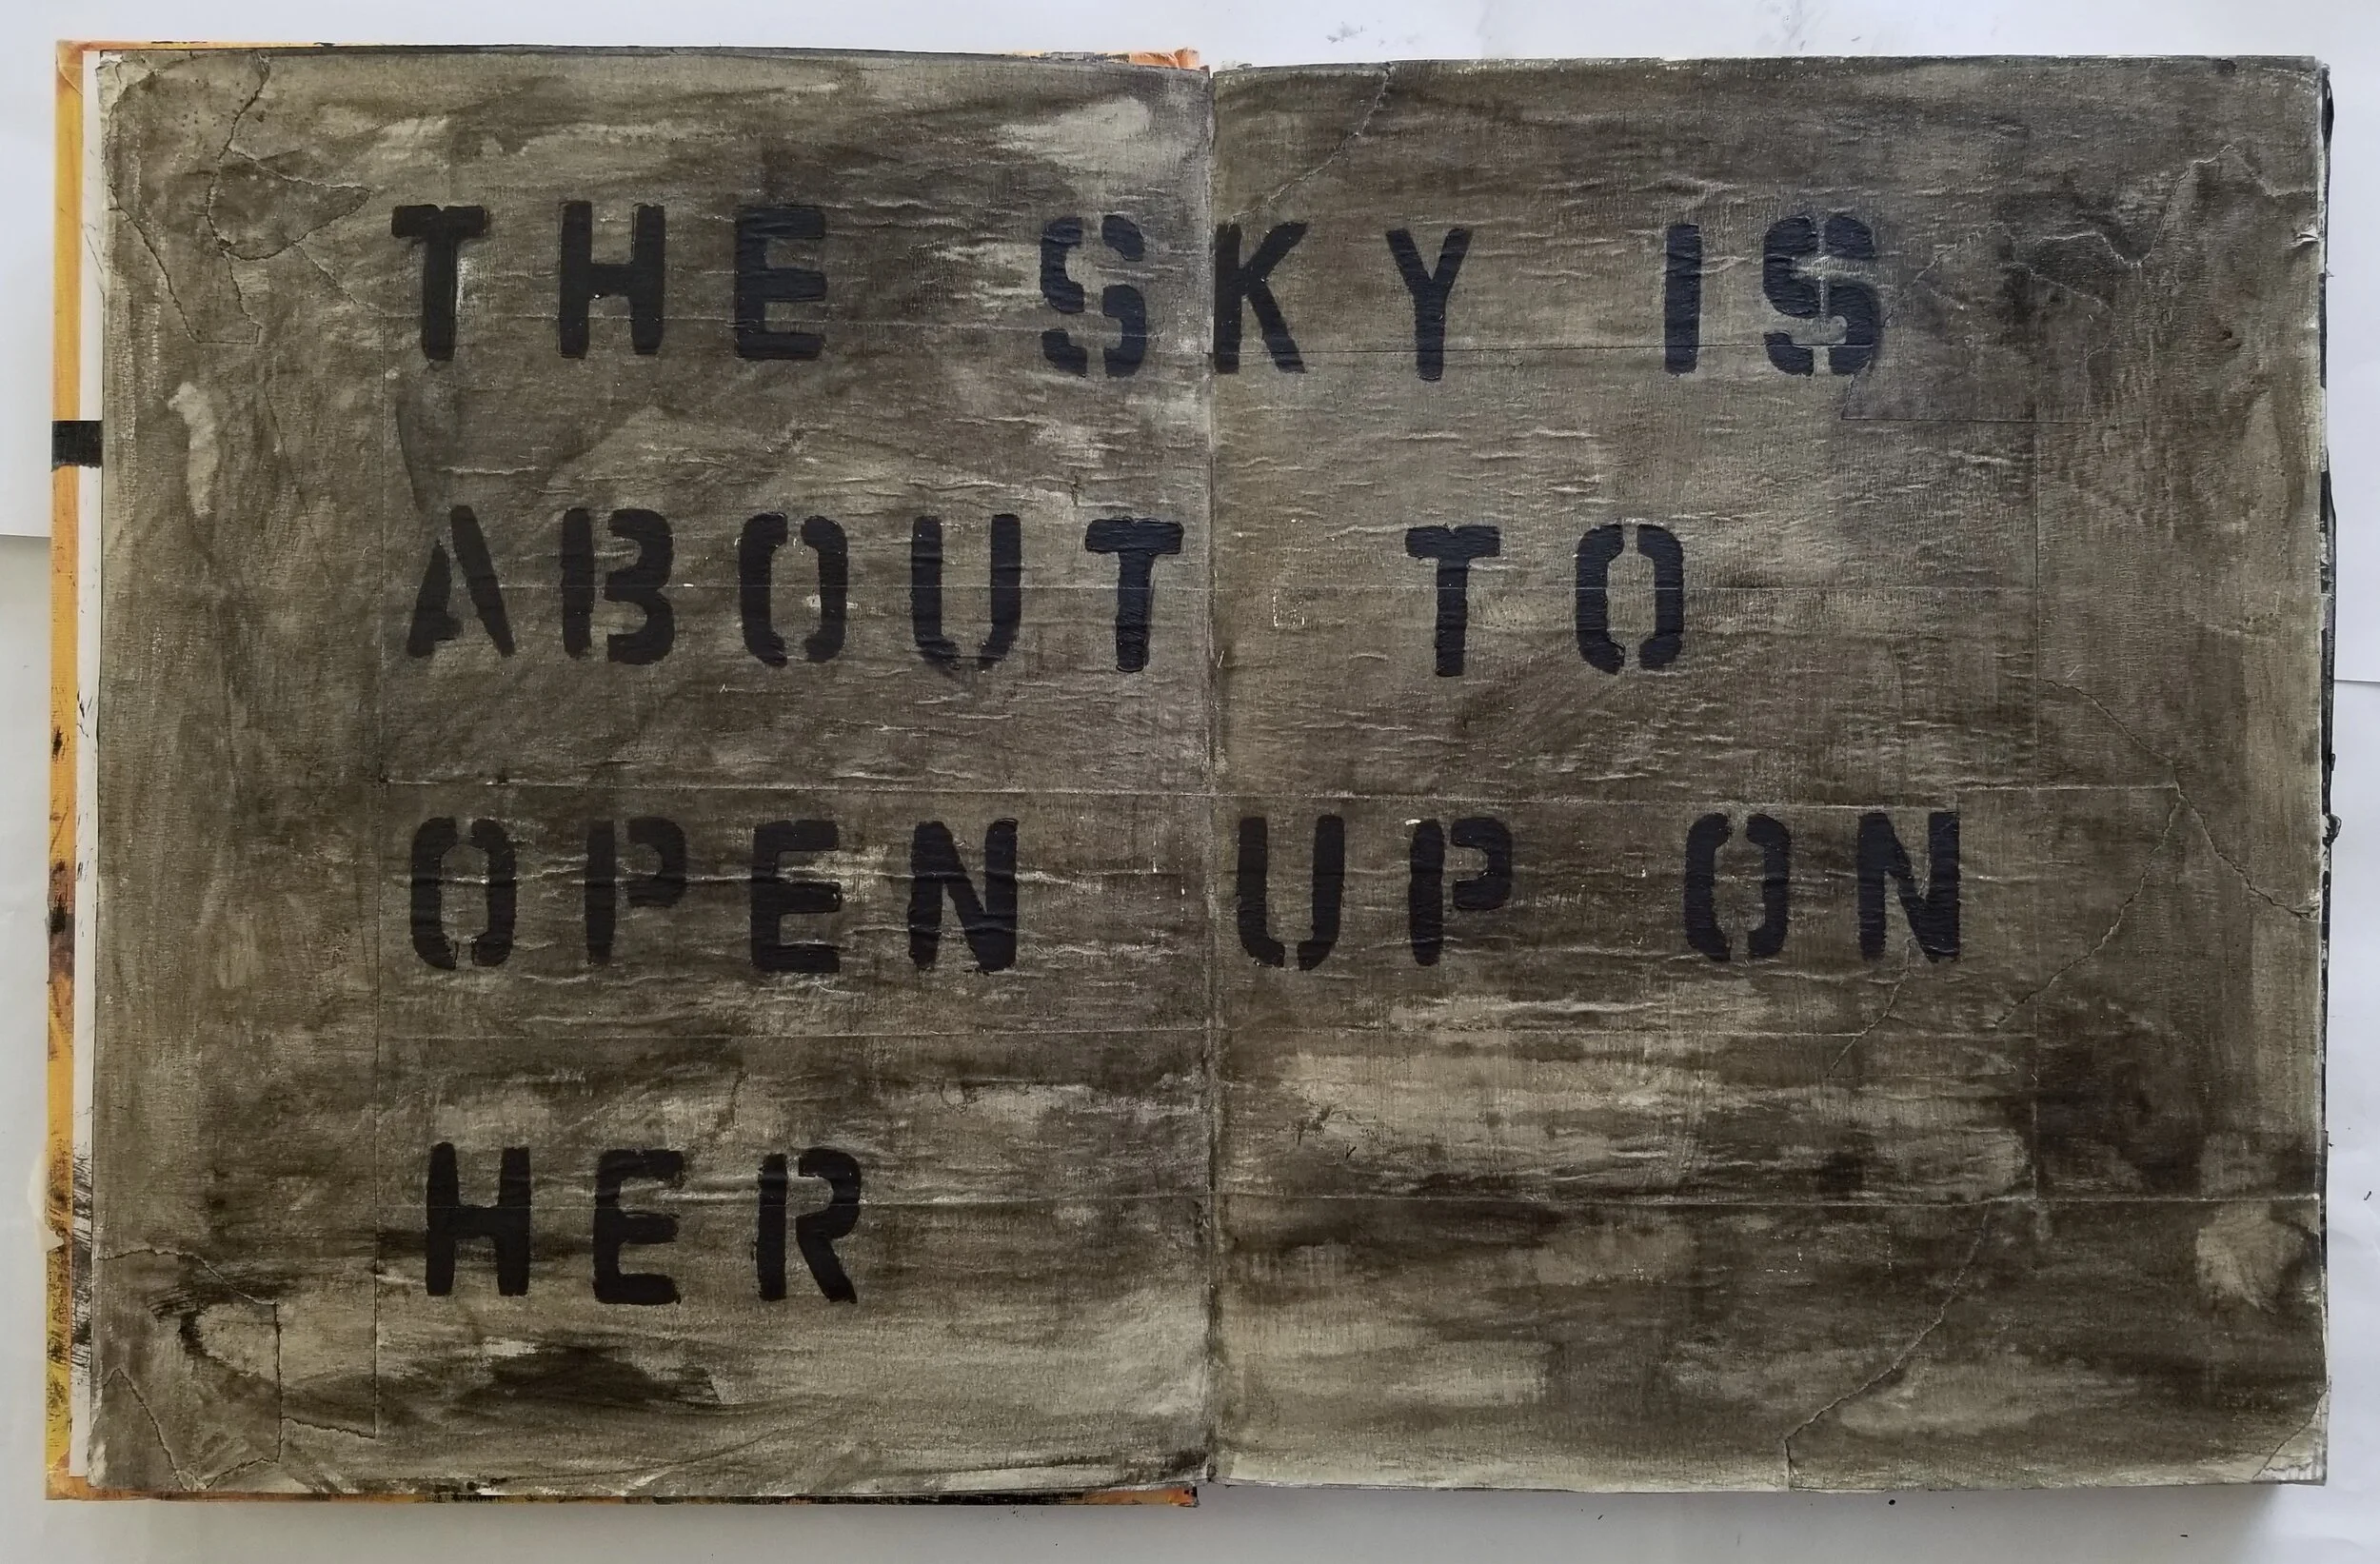 THE SKY IS
ABOUT TO
OPEN UP ON
HER